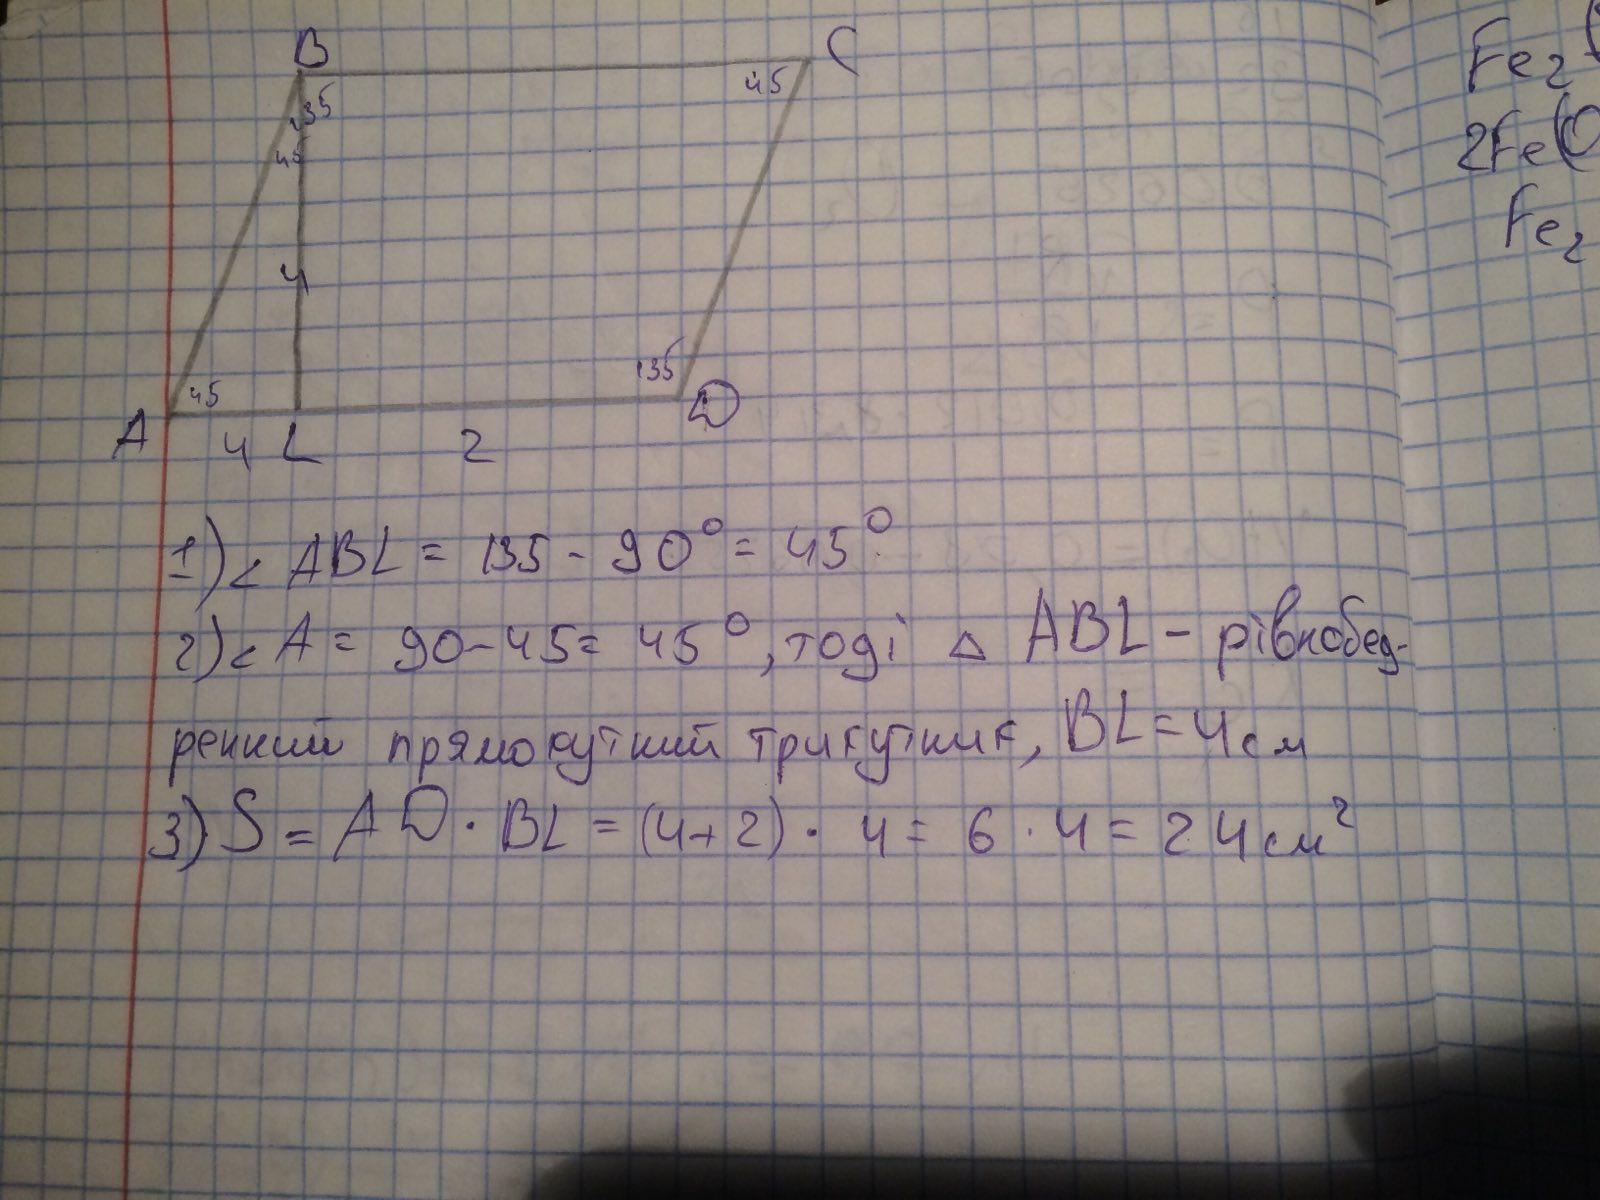 B
C
45
135
45
4
45
135
A
4
L
2
D
1) < ABL = 135 - 90° = 45°
2) < A = 90 - 45 = 45°, тоді △ ABL - рівнобед-
ренний прямокутний трикутник, BL = 4 см
3) S = AD · BL = (4+2) · 4 = 6 · 4 = 24 см²
Fe₂(
2Fe(O
Fe₂